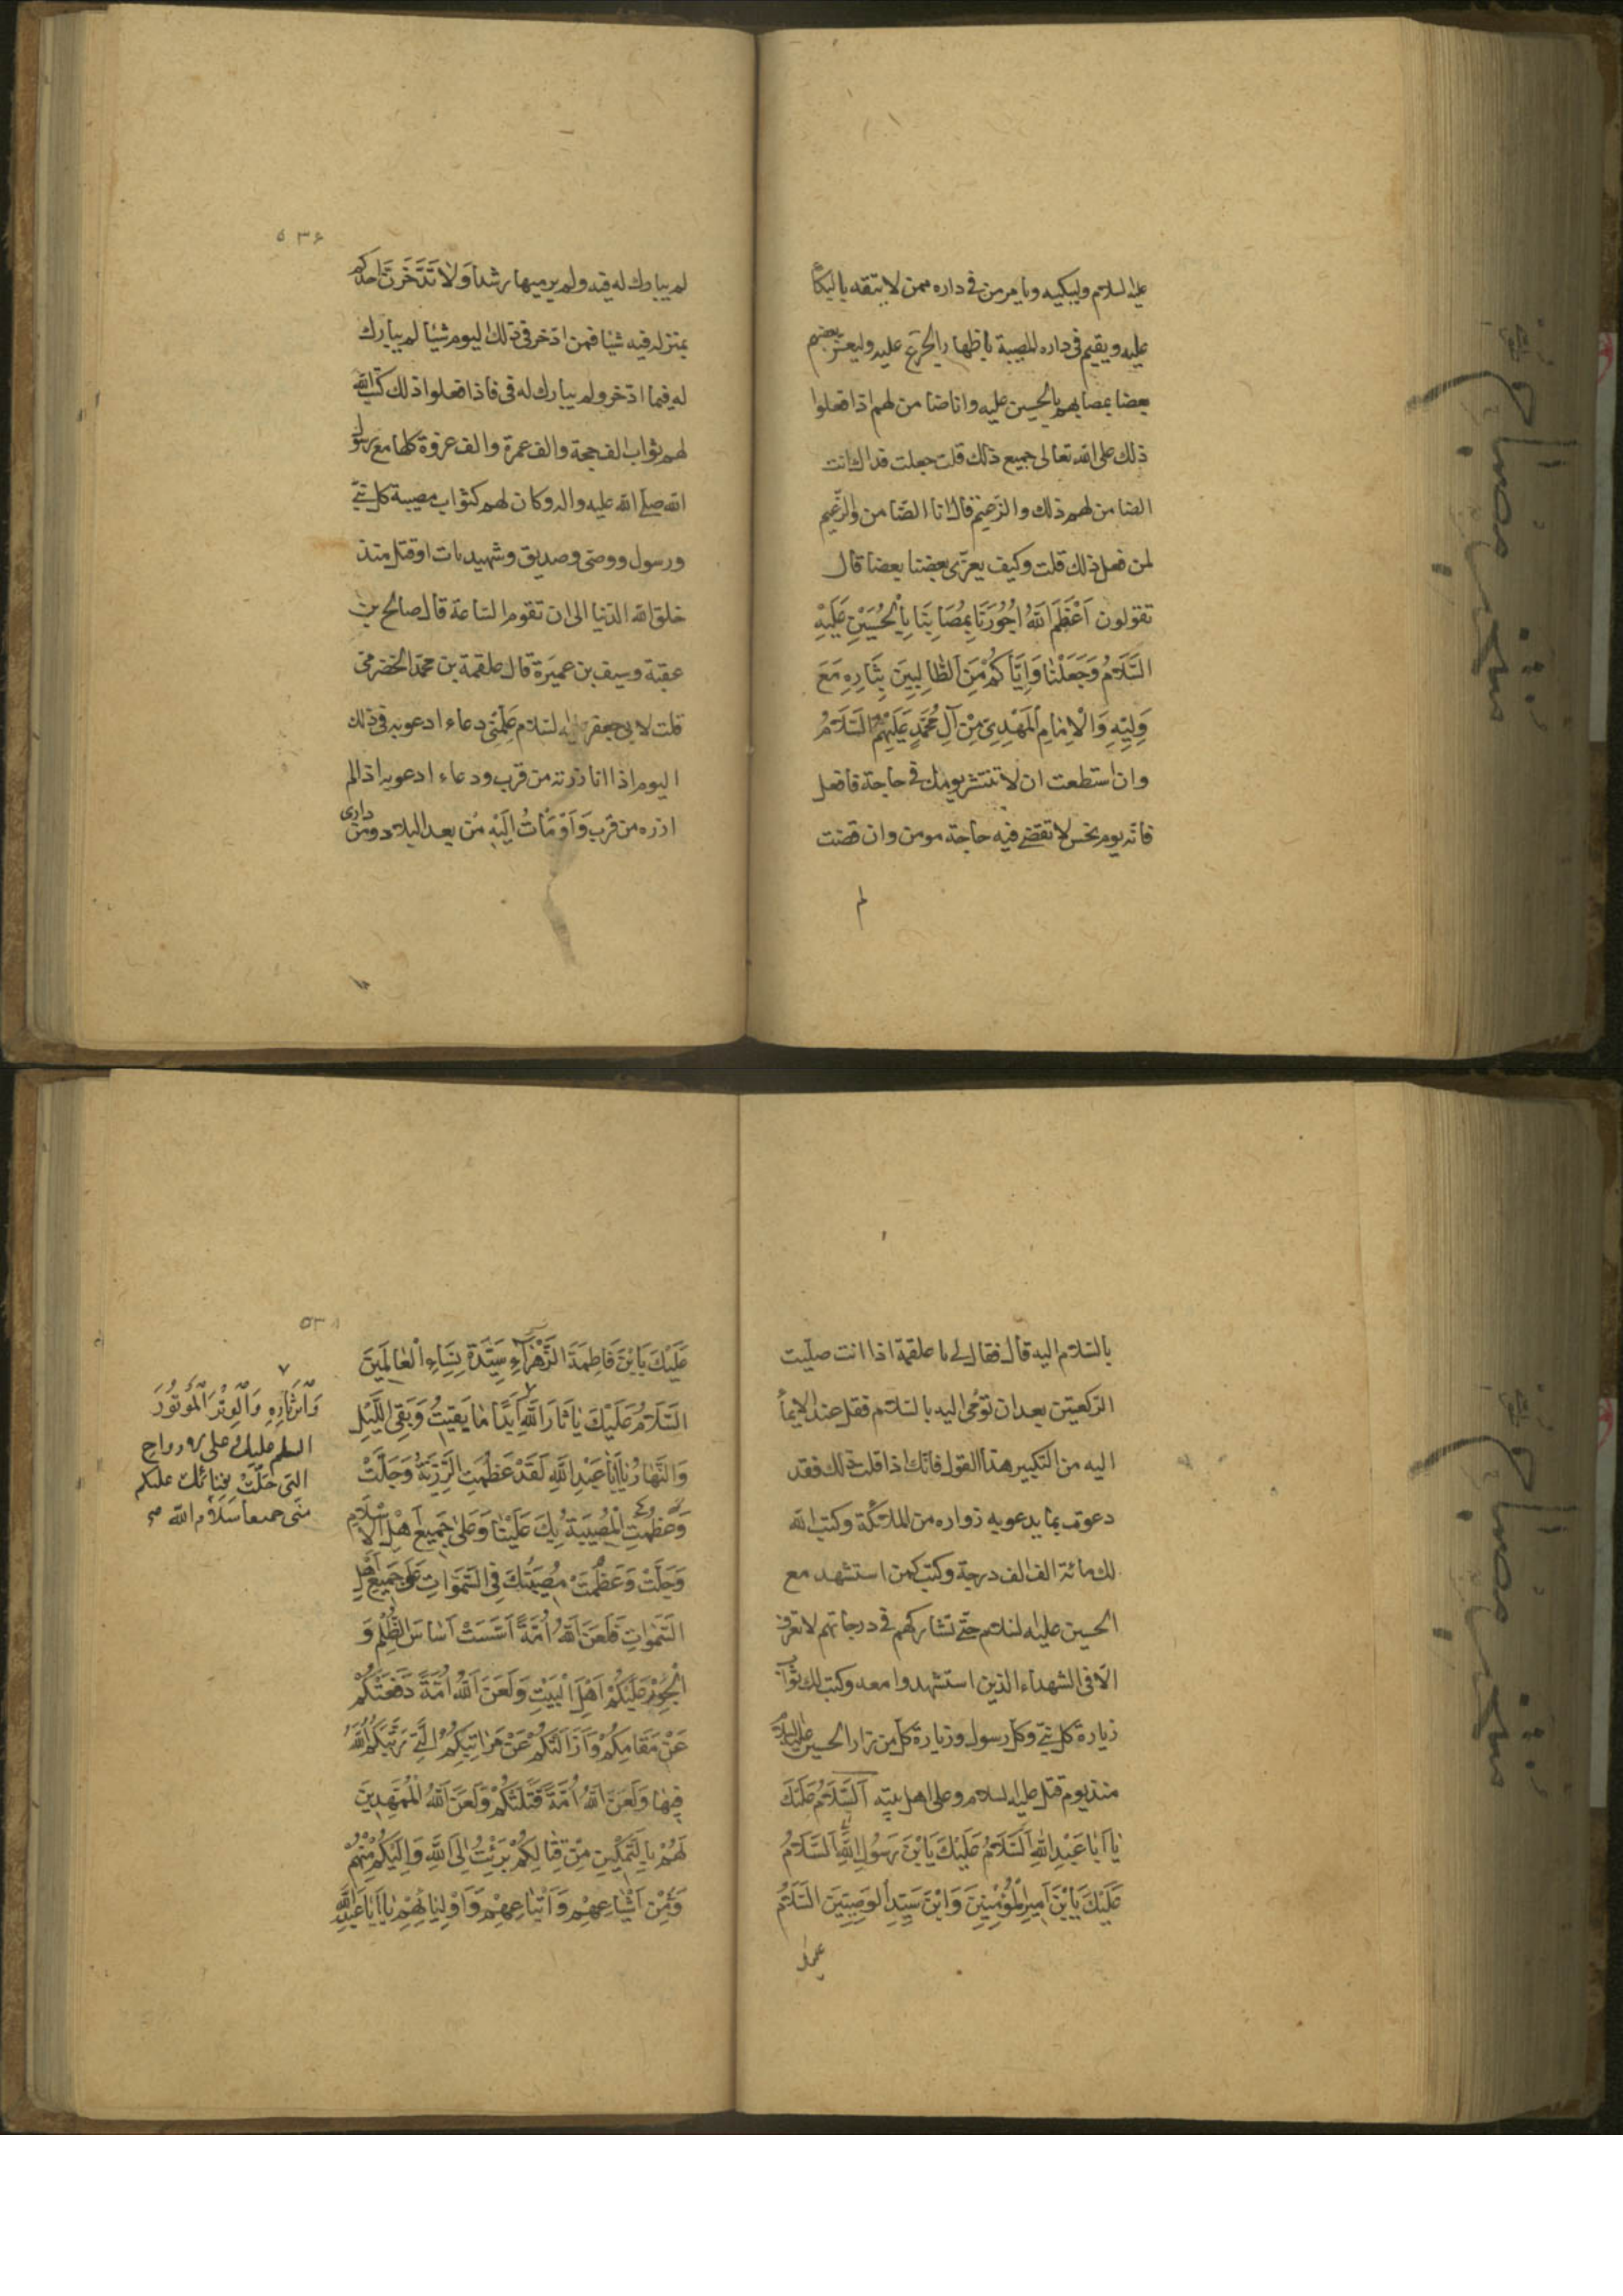 عليه السلام ويبكيه ويامر من في داره ممن لا يتقه بالبكا
عليه ويقيم في داره المصيبة باظهار الجزع عليه وليعز بعضهم
بعضا بمصابهم بالحسين عليه وانا ضامن لهم اذا فعلوا
ذلك على الله تعالى جميع ذلك قلت جعلت فداك انت
الضامن لهم ذلك والزعيم قال انا الضامن والزعيم
لمن فعل ذلك قلت وكيف يعزى بعضنا بعضا قال
تقولون اَعْظَمَ اللهُ اُجُورَنَا بِمُصَابِنَا بِالْحُسَيْنِ عَلَيْهِ
السَّلَامُ وَجَعَلَنَا وَاِيَّاكُمْ مِنَ الطَّالِبِينَ بِثَارِهِ مَعَ
وَلِيِّهِ وَالْاِمَامِ الْمَهْدِيِّ مِنْ آلِ مُحَمَّدٍ عَلَيْهِمُ السَّلَامُ
وان استطعت ان لا تنتشر يومك في حاجة فافعل
فانه يوم نحس لا تقضى فيه حاجة مومن وان قضت
لم
۵۳۶
لم يبارك له فيه ولم ير ميها رشدا وَلَا تَدَّخِرَنَّ احدكم
بمنزله فيه شيئا فمن ادخر في ذلك اليوم شيئا لم يبارك
له فيما ادخر ولم يبارك له في فاذا فعلوا ذلك كتب الله
لهم ثواب الف حجة والف عمرة والف غزوة كلها مع رسول
الله صلى الله عليه واله وكان لهم كثواب مصيبة كل نبي
ورسول ووصي وصديق وشهيد مات او قتل منذ
خلق الله الدنيا الى ان تقوم الساعة قال صالح بن
عقبة وسيف بن عميرة قال علقمة بن محمد الحضرمى
قلت لابي جعفر عليه السلام عَلِّمْنِي دعاء ادعو به في ذلك
اليوم اذا انا زرته من قرب ودعاء ادعو به اذا لم
ازره من قرب وَاَوْمَأْتُ اِلَيْهِ مِن بعد البلاد ومن دارى
بالسلام اليه قال فقال لي يا علقمة اذا انت صليت
الركعتين بعد ان تومى اليه بالسلام فقل عند الايمأ
اليه من التكبير هذا القول فانك اذا قلت ذلك فقد
دعوت بما يدعو به زواره من الملائكة وكتب الله
لك مائة الف الف درجة وكتب كمن استشهد مع
الحسين عليه السلام حتى تشاركهم في درجاتهم لا تعرف
الا في الشهداء الذين استشهدوا معه وكتب لك ثواب
زيارة كل نبي وكل رسول وزيارة كل من زار الحسين عليه السلام
منذ يوم قتل عليه السلام وعلى اهل بيته اَلسَّلَامُ عَلَيْكَ
يَا اَبَا عَبْدِ اللهِ اَلسَّلَامُ عَلَيْكَ يَا بْنَ رَسُولِ اللهِ اَلسَّلَامُ
عَلَيْكَ يَا بْنَ اَمِيرِ الْمُؤْمِنِينَ وَابْنَ سَيِّدِ الْوَصِيِّينَ السَّلَامُ
عليك
۵۳۸
عَلَيْكَ يَا بْنَ فَاطِمَةَ الزَّهْرَاءِ سَيِّدَةِ نِسَاءِ الْعَالَمِينَ
السَّلَامُ عَلَيْكَ يَا ثَارَ اللهِ اَبَدًا مَا بَقِيتُ وَبَقِيَ اللَّيْلُ
وَالنَّهَارُ يَا اَبَا عَبْدِ اللهِ لَقَدْ عَظُمَتِ الرَّزِيَّةُ وَجَلَّتْ
وَعَظُمَتِ الْمُصِيبَةُ بِكَ عَلَيْنَا وَعَلَى جَمِيعِ اَهْلِ الْاِسْلَامِ
وَجَلَّتْ وَعَظُمَتْ مُصِيبَتُكَ فِي السَّمَوَاتِ عَلَى جَمِيعِ اَهْلِ
السَّمَوَاتِ فَلَعَنَ اللهُ اُمَّةً اَسَّسَتْ اَسَاسَ الظُّلْمِ وَ
الْجَوْرِ عَلَيْكُمْ اَهْلَ الْبَيْتِ وَلَعَنَ اللهُ اُمَّةً دَفَعَتْكُمْ
عَنْ مَقَامِكُمْ وَاَزَالَتْكُمْ عَنْ مَرَاتِبِكُمُ الَّتِي رَتَّبَكُمُ اللهُ
فِيهَا وَلَعَنَ اللهُ اُمَّةً قَتَلَتْكُمْ وَلَعَنَ اللهُ الْمُمَهِّدِينَ
لَهُمْ بِالتَّمْكِينِ مِنْ قِتَالِكُمْ بَرِئْتُ اِلَى اللهِ وَاِلَيْكُمْ مِنْهُمْ
وَمِنْ اَشْيَاعِهِمْ وَاَتْبَاعِهِمْ وَاَوْلِيَائِهِمْ يَا اَبَا عَبْدِ اللهِ
وَابْنَ ثَارِهِ وَالْوِتْرَ الْمَوْتُورَ
السلم عليك وعلى الارواح
التى حَلَّتْ بِفِنَائِكَ عليكم
منى جميعا سَلَامُ الله